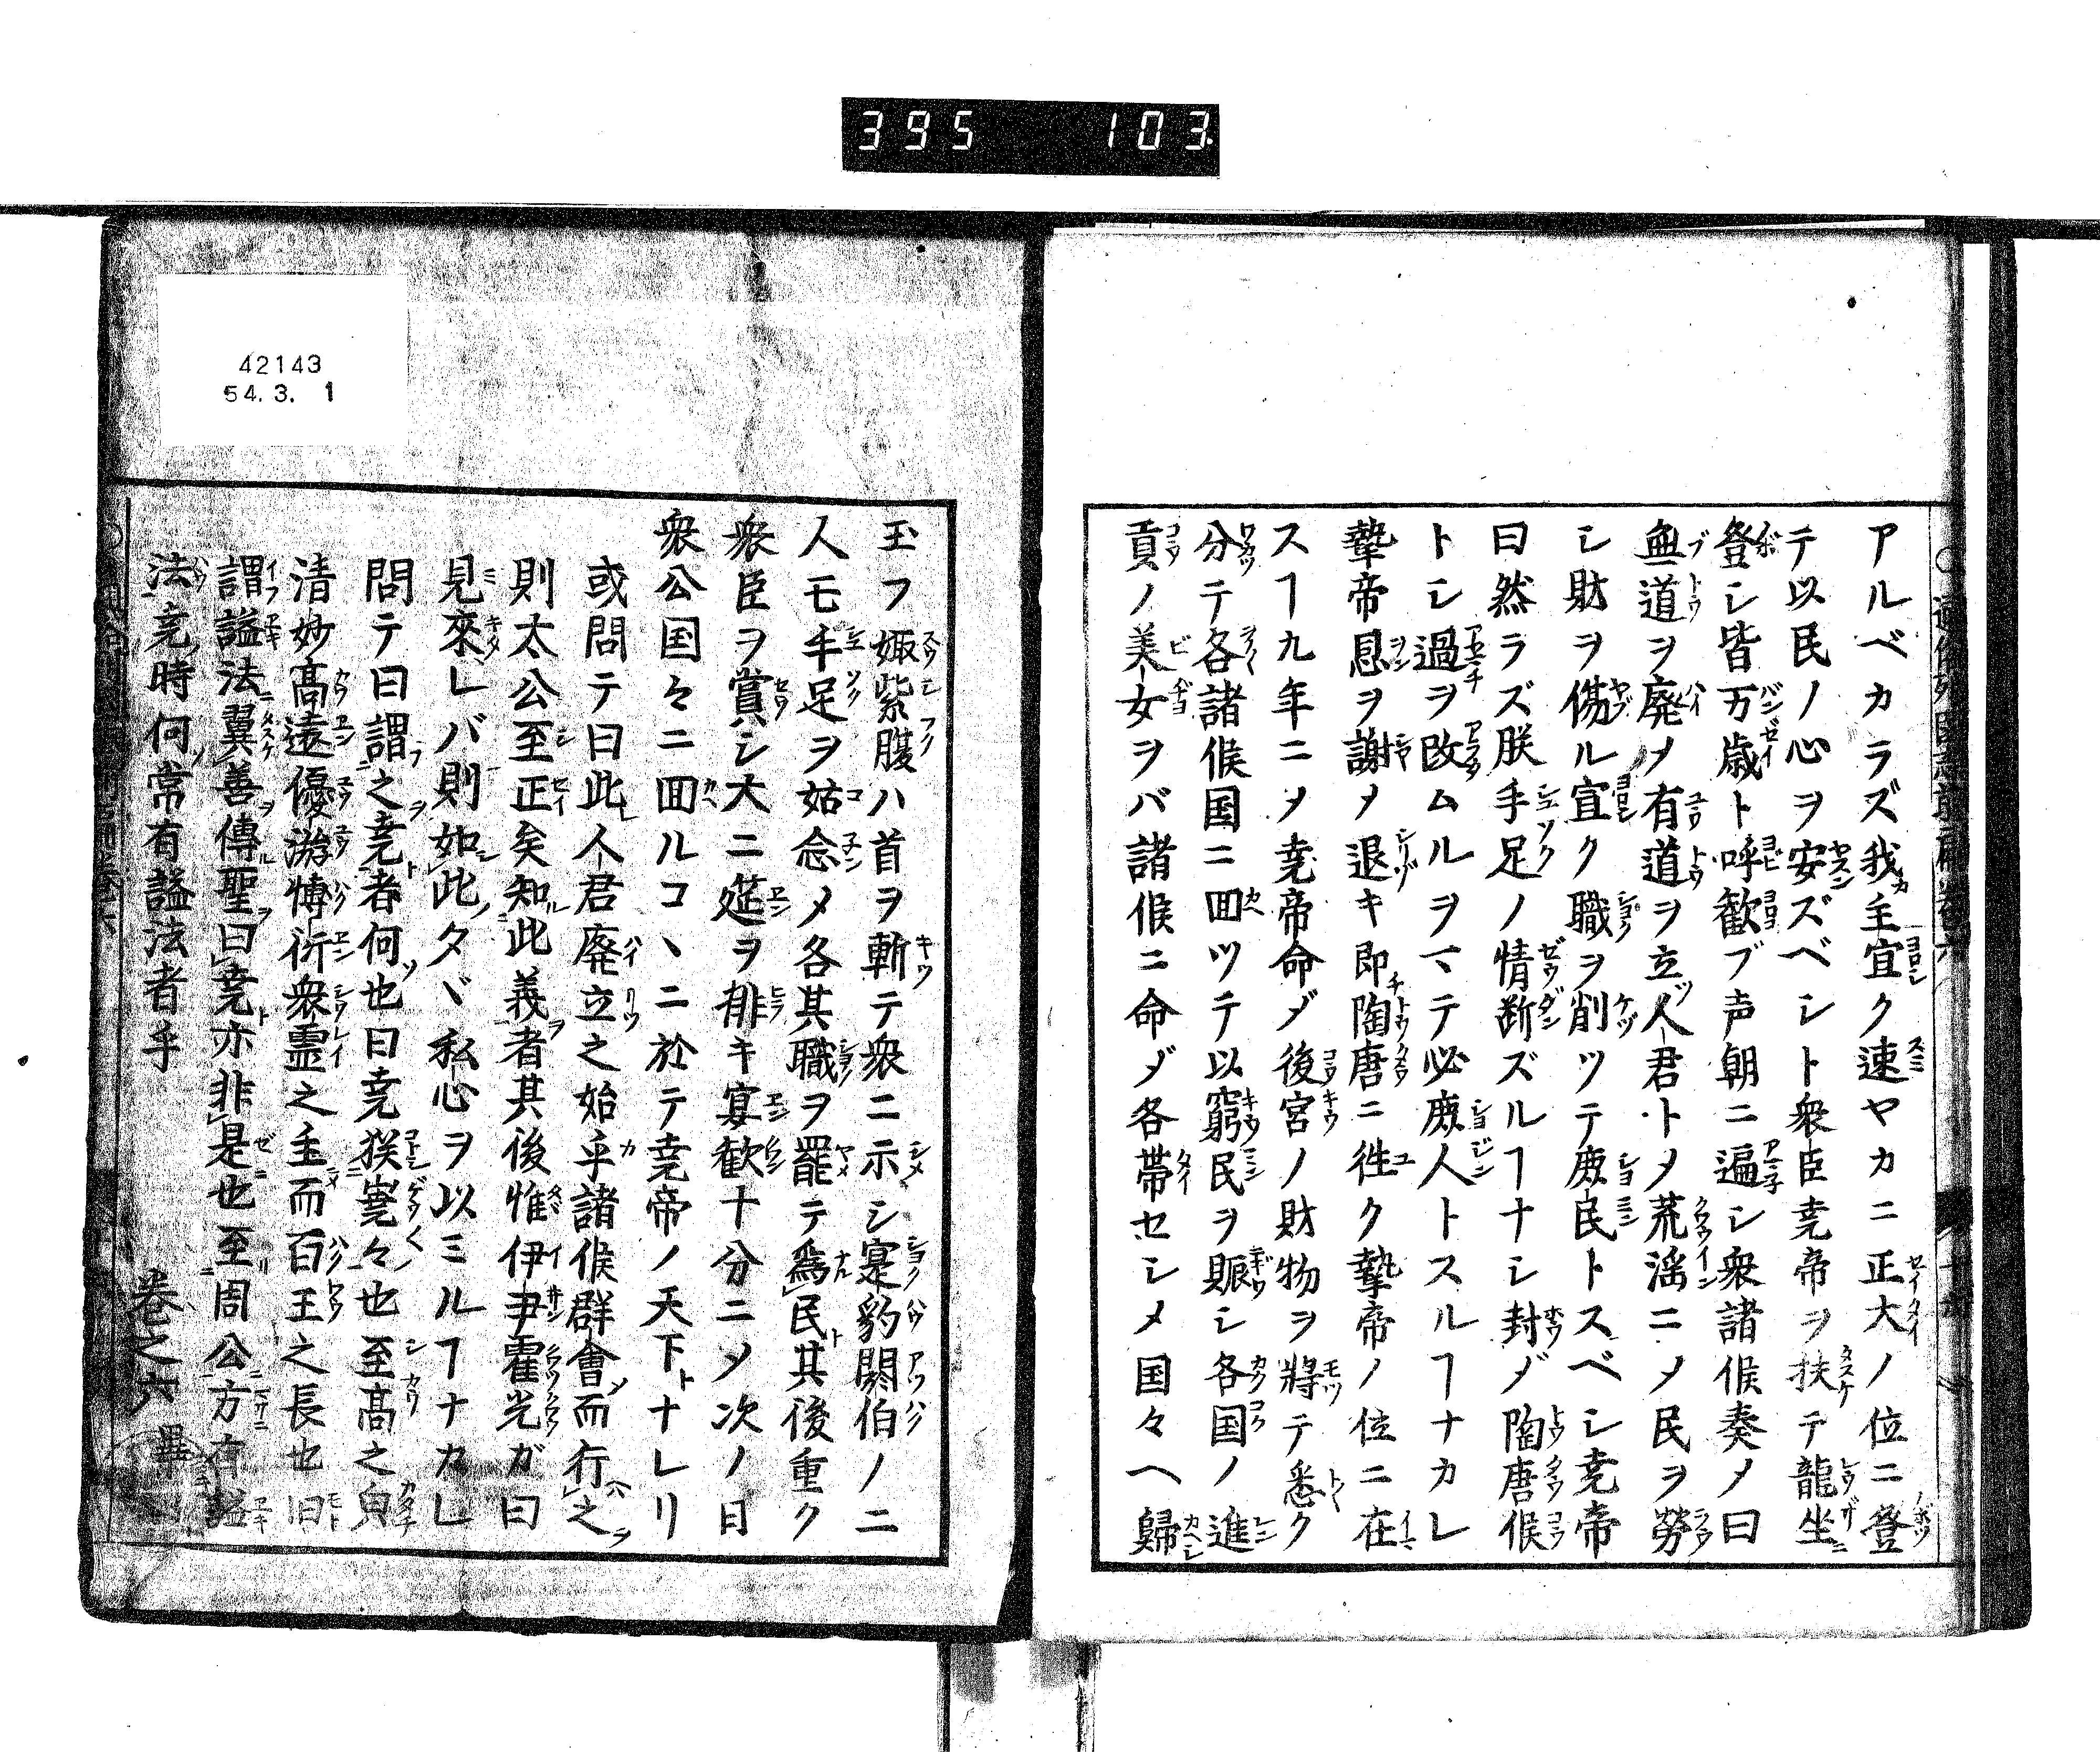 395 103
アルベカラズ我主宜ク速ヤカニ正大ノ位ニ登
テ以民ノ心ヲ安ズベシト衆臣尭帝ヲ扶テ龍坐ニ
登シ皆万歳ト呼歓ブ声朝ニ遍シ衆諸侯奏メ曰
無道ヲ廃メ有道ヲ立人君トメ荒淫ニメ民ヲ勞
シ財ヲ傷ル宜ク職ヲ削ツテ庻民トスベシ尭帝
曰然ラズ朕手足ノ情断ズルヿナシ封ダ陶唐侯
トシ過ヲ改ムルヲマテ必庻人トスルヿナカレ
摯帝恩ヲ謝メ退キ即陶唐ニ徃ク摯帝ノ位ニ在
スヿ九年ニメ尭帝命ダ後宮ノ財物ヲ將テ悉ク
分テ各諸侯国ニ回ツテ以窮民ヲ賑シ各国ノ進
貢ノ美女ヲバ諸侯ニ命ダ各帯セシメ国々へ歸
42143
54.3. 1
玉フ娵紫腹ハ首ヲ斬テ衆ニ示シ寔豹閼伯ノ二
人モ手足ヲ姑念メ各其職ヲ罷テ爲民其後重ク
衆臣ヲ賞シ大ニ筵ヲ排キ宴歓十分ニメ次ノ日
衆公国々ニ回ルコヽニ於テ尭帝ノ天下トナレリ
或問テ曰此人君廃立之始乎諸侯群會而行之
則太公至正矣知此義者其後惟伊尹霍光ガ曰
見來レバ則如此タヾ私心ヲ以ミルヿナカレ
問テ曰謂之尭者何也曰尭猴嶤々也至髙之皃
清妙髙遠優游愽衍衆霊之主而百王之長也旧
謂諡法翼善傳聖曰尭亦非是也至周公方有諡
法尭時何常有諡法者乎
卷之六 畢